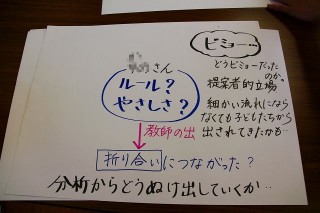 ビミョー…
さん
ルール？
やさしさ？
どうビミョーだった
のか。
提案者的立場
細かい流れになら
なくても子どもたちから
出されてきたかも…
教師の出
折り合いにつながった？
分析からどうぬけ出していくか…